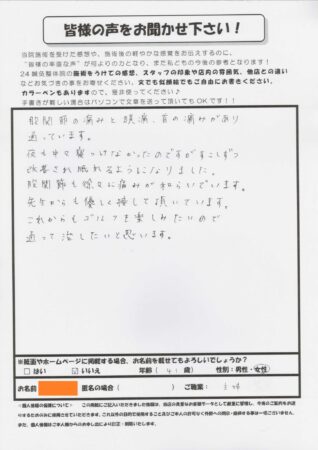 皆様の声をお聞かせ下さい！
当院施術を受けた感想や、施術後の軽やかな感覚をお伝えするのに、
"皆様の率直な声"が何よりの力となり、またわたしどもの今後の参考となります！
24鍼灸整体院の施術をうけての感想、スタッフの印象や店内の雰囲気、他店との違い
などお気づきの事をお寄せください。文でも似顔絵でもご自由にお書きください。
カラーペンもありますので、是非使ってください♪
手書きが難しい場合はパソコンで文章を送って頂いてもOKです！！
股関節の痛みと頭痛、首の痛みがあり
通っています。
夜も中々寝つけなかったのですがすこしずつ
改善され眠れるようになりました。
股関節も徐々に痛みが和らいでいます。
先生からも優しく接して頂いています。
これからもゴルフを楽しみたいので
通って治したいと思います。
※紙面やホームページに掲載する場合、お名前を載せてもよろしいでしょうか？
□ はい ☑ いいえ 年齢（ 41 歳） 性別：男性・女性
お名前 匿名の場合（ ） ご職業： 主婦
・個人情報の保護について